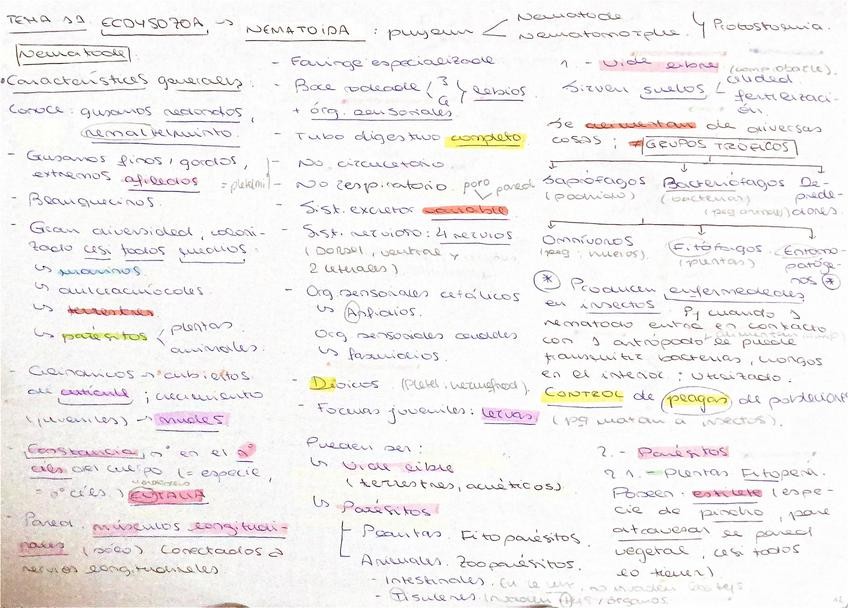 TEMA 11 ECDYSOZOA -> NEMATOIDA : pseudocel
Nematode
Nematomorpha. } Protostomia.
Nematode:
• Características generales:
Conoce: gusanos redondos,
nemathelminto.
- Gusanos finos, gordos,
extremos afilados
- Blanquecinos.
- Gran diversidad, coloni-
zado casi todos medios.
↳ marinos
↳ dulceacuícolas
↳ terrestres
↳ parásitos < plantas
animales.
- Cilíndricos, cubiertos
de cutícula; crecimiento
(juveniles) -> mudas
- Constancia nº en el nº
céls del cuerpo (= especie,
= nº céls.) EUTELIA
- Pared. músculos longitudi-
nales (sólo) conectados a
nervios longitudinales.
- Faringe especializada
- Boca rodeada { 3 6 } labios
+ órg. sensoriales.
- Tubo digestivo completo
- No circulatorio.
- No respiratorio. poro pared
- Sist. excretor variable
- Sist. nervioso: 4 nervios
(Dorsal, ventral y
2 laterales)
- Org sensoriales cefálicos
↳ Anfidios.
Org sensoriales caudales
↳ fasmidios.
- Dioicos
- Formas juveniles: larvas.
Pueden ser:
↳ Vida libre
(terrestres, acuáticos)
↳ Parásitos
Plantas. Fitoparásitos
Animales. Zooparásitos.
- Intestinales. no invaden
- Tisulares invaden órganos.
1.- Vida libre
Sirven suelos < calidad
fertilizaci-
ón.
Se alimentan de diversas
cosas; GRUPOS TRÓFICOS
Saprófagos Bacteriófagos De-
(podrido) (bacterias) preda-
dores.
Omnívoros Fitófagos Entomo-
(plantas) patóge-
nos *
* Producen enfermedades
en insectos. Pq cuando 1
nematodo entra en contacto
con 1 artrópodo le puede
transmitir bacterias, hongos
en el interior; utilizado.
CONTROL de plagas de
(pq matan a insectos).
2.- Parásitos
2.1.- Plantas Fitopará.
Poseen estilete (espe-
cie de pincho, para
atravesar la pared
vegetal, casi todos
lo tienen)